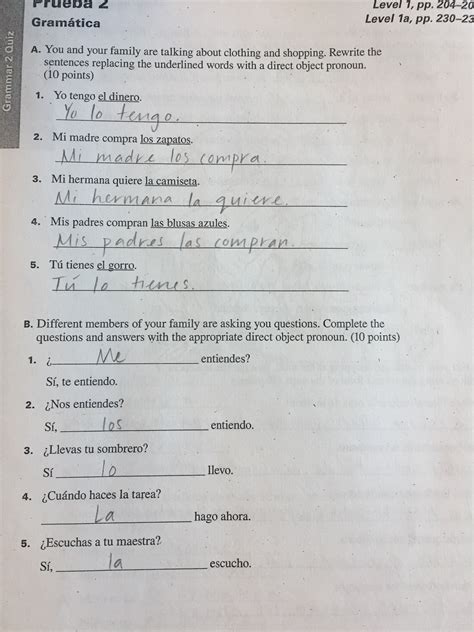 Prueba 2
Gramática
Level 1, pp. 204–20
Level 1a, pp. 230–23
Grammar 2 Quiz
A. You and your family are talking about clothing and shopping. Rewrite the
sentences replacing the underlined words with a direct object pronoun.
(10 points)
1. Yo tengo el dinero.
Yo lo tengo.
2. Mi madre compra los zapatos.
Mi madre los compra.
3. Mi hermana quiere la camiseta.
Mi hermana la quiere.
4. Mis padres compran las blusas azules.
Mis padres las compran.
5. Tú tienes el gorro.
Tú lo tienes.
B. Different members of your family are asking you questions. Complete the
questions and answers with the appropriate direct object pronoun. (10 points)
1. ¿ Me entiendes?
Sí, te entiendo.
2. ¿Nos entiendes?
Sí, los entiendo.
3. ¿Llevas tu sombrero?
Sí lo llevo.
4. ¿Cuándo haces la tarea?
La hago ahora.
5. ¿Escuchas a tu maestra?
Sí, la escucho.